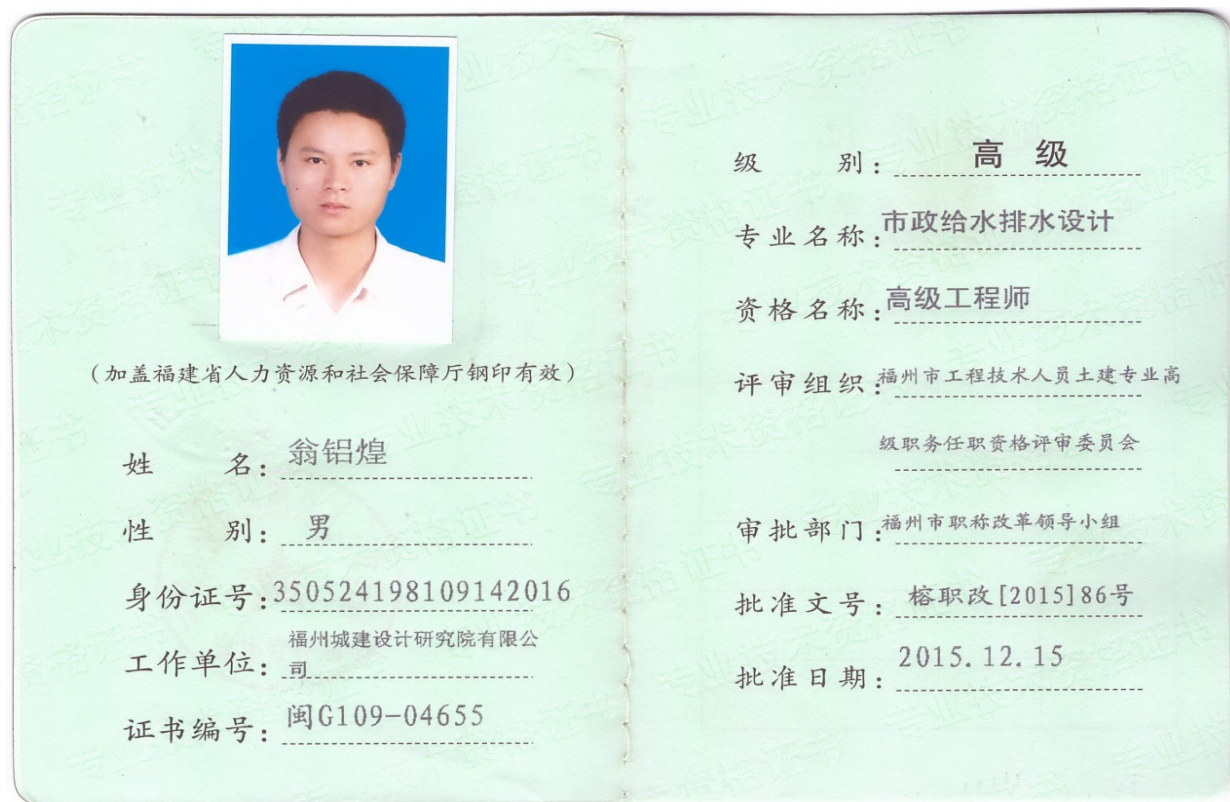 (加盖福建省人力资源和社会保障厅钢印有效)
姓 名: 翁铝煌
性 别: 男
身份证号:350524198109142016
工作单位: 福州城建设计研究院有限公
司
证书编号: 闽G109-04655
级 别: 高 级
专业名称: 市政给水排水设计
资格名称: 高级工程师
评审组织: 福州市工程技术人员土建专业高
级职务任职资格评审委员会
审批部门: 福州市职称改革领导小组
批准文号: 榕职改[2015]86号
批准日期: 2015.12.15